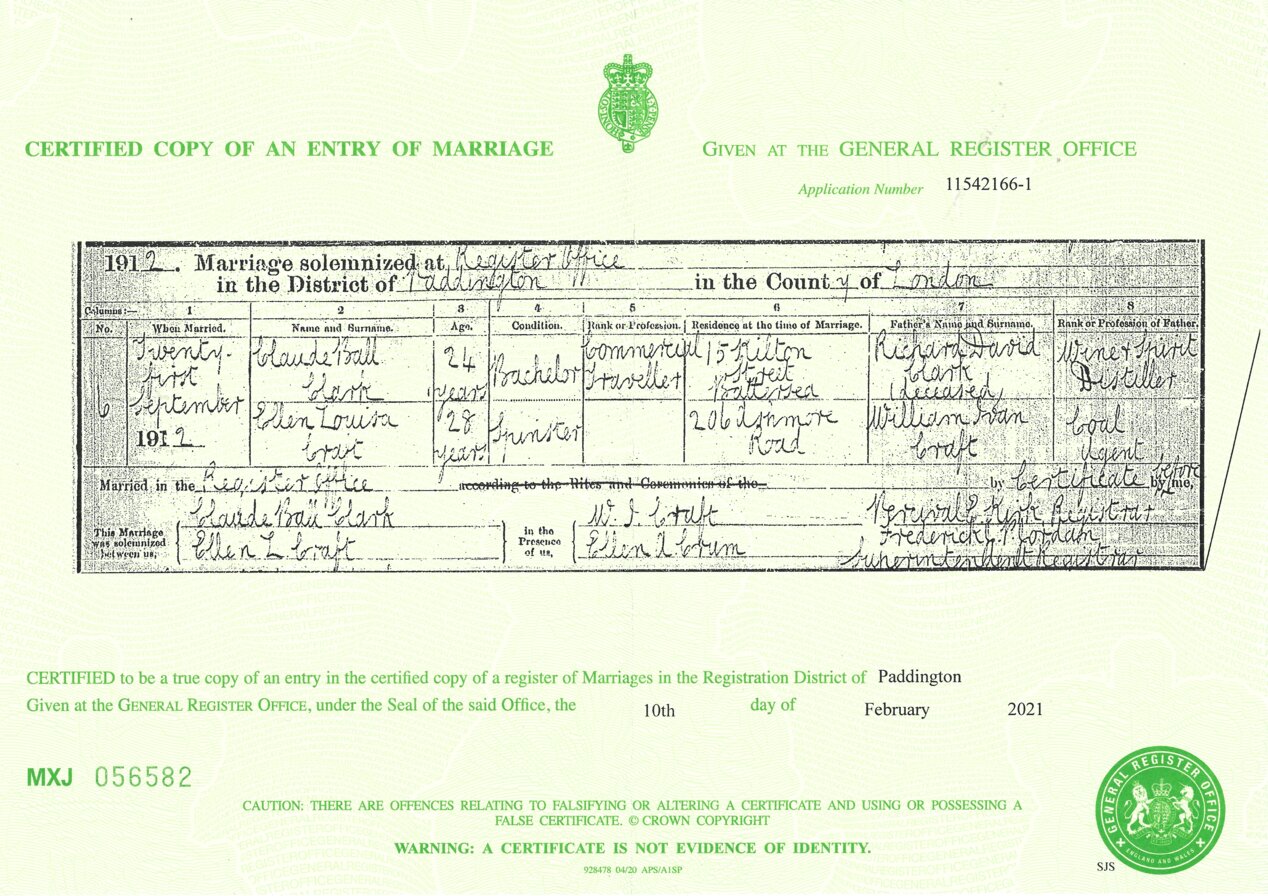 CERTIFIED COPY OF AN ENTRY OF MARRIAGE
GIVEN AT THE GENERAL REGISTER OFFICE
Application Number 11542166-1
1912. Marriage solemnized at Register Office
in the District of Paddington in the County of London
Columns:— 1 2 3 4 5 6 7 8
No. When Married. Name and Surname. Age. Condition. Rank or Profession. Residence at the time of Marriage. Father's Name and Surname. Rank or Profession of Father.
6 Twenty-first September 1912
Claude Ball Clark 24 years Bachelor Commercial Traveller 15 Kilton Street Battersea Richard David Clark (deceased) Wine & Spirit Distiller
Ellen Louisa Craft 28 years Spinster 206 Ashmore Road William Ivan Craft Coal Agent
Married in the Register Office according to the Rites and Ceremonies of the by Certificate before by me,
This Marriage was solemnized between us,
Claude Ball Clark
Ellen L Craft
in the Presence of us,
W. I. Craft
Ellen A Crum
Percival E Kirk Registrar
Frederick P. Jordan
Superintendent Registrar
CERTIFIED to be a true copy of an entry in the certified copy of a register of Marriages in the Registration District of Paddington
Given at the GENERAL REGISTER OFFICE, under the Seal of the said Office, the 10th day of February 2021
MXJ 056582
CAUTION: THERE ARE OFFENCES RELATING TO FALSIFYING OR ALTERING A CERTIFICATE AND USING OR POSSESSING A
FALSE CERTIFICATE. © CROWN COPYRIGHT
WARNING: A CERTIFICATE IS NOT EVIDENCE OF IDENTITY.
928478 04/20 APS/A1SP
SJS
GENERAL REGISTER OFFICE
ENGLAND AND WALES